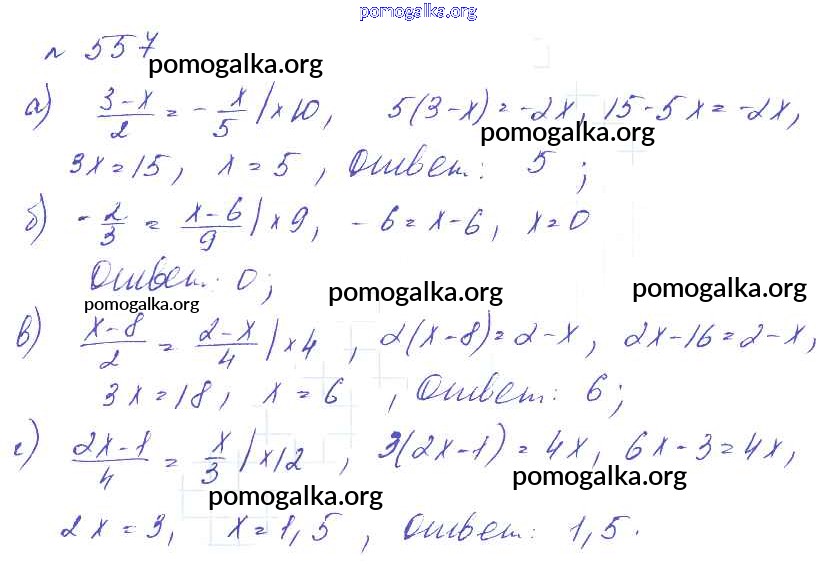 pomogalka.org
№ 557
pomogalka.org
а) (3-x)/2 = -x/5 | ×10, 5(3-x) = -2x, 15-5x = -2x,
pomogalka.org
3x=15, x=5, Ответ: 5;
б) -2/3 = (x-6)/9 | ×9, -6=x-6, x=0
Ответ: 0;
pomogalka.org pomogalka.org pomogalka.org
в) (x-8)/2 = (2-x)/4 | ×4, 2(x-8)=2-x, 2x-16=2-x,
3x=18, x=6, Ответ: 6;
г) (2x-1)/4 = x/3 | ×12, 3(2x-1)=4x, 6x-3=4x,
pomogalka.org pomogalka.org
2x=3, x=1,5, Ответ: 1,5.